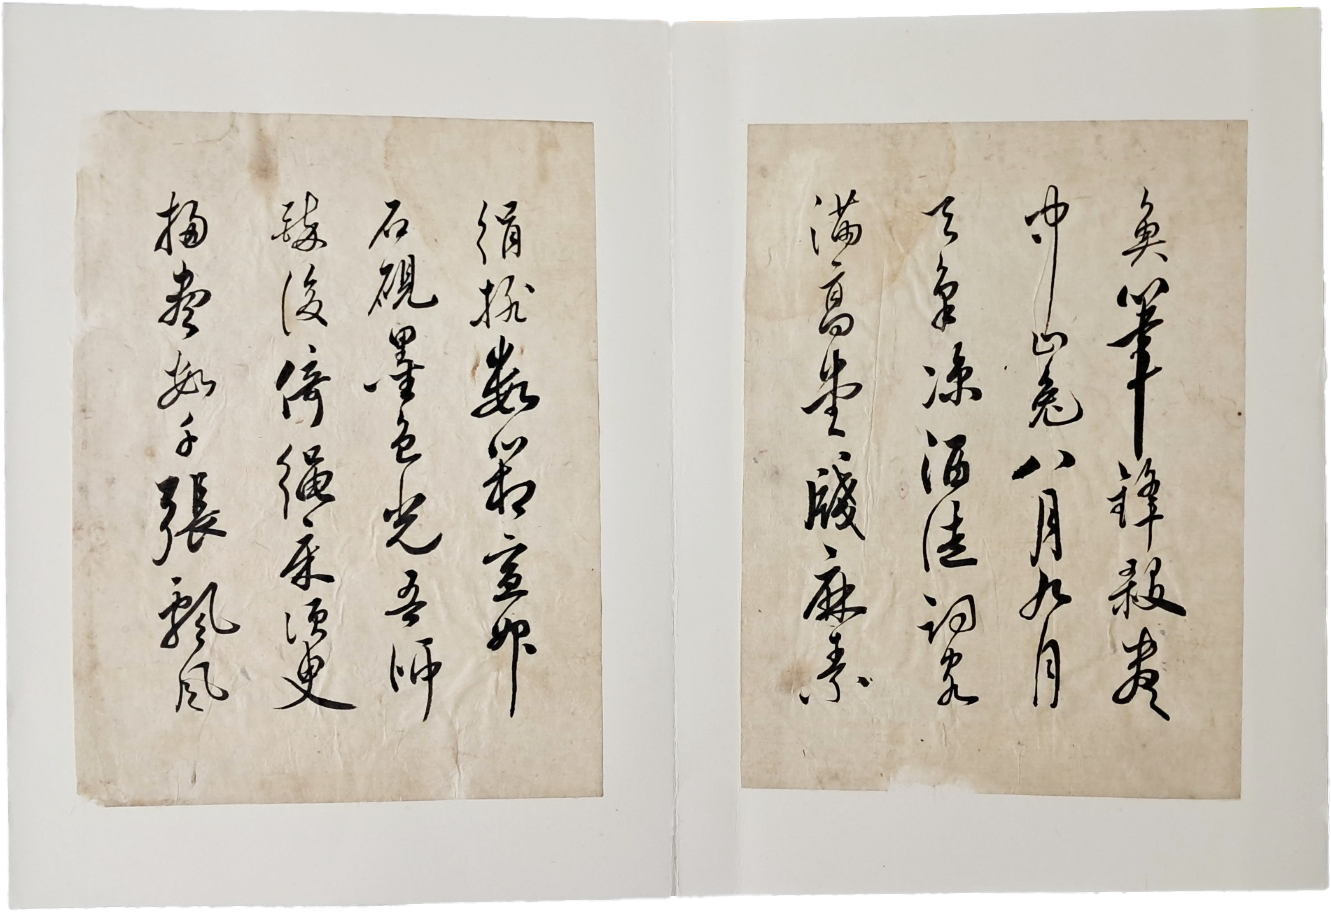 魚筆鋒殺盡
中山兔八月九月
天氣涼酒徒詞客
滿高堂牋麻素
絹排數箱宣州
石硯墨色光吾師
醉後倚繩床須臾
掃盡數千張飄風